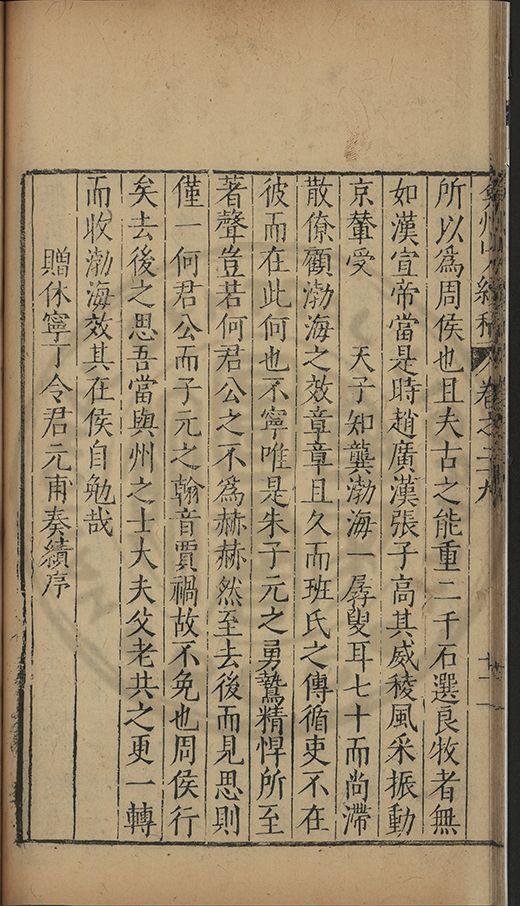 弇州山人續稿 卷之二十九 十一
所以爲周侯也且夫古之能重二千石選良牧者無
如漢宣帝當是時趙廣漢張子高其威稜風采振動
京輦受 天子知龔渤海一孱叟耳七十而尚滯
散僚顧渤海之效章章且久而班氏之傳循吏不在
彼而在此何也不寧唯是朱子元之勇鷙精悍所至
著聲豈若何君公之不爲赫赫然至去後而見思則
僅一何君公而子元之翰音賈禍故不免也周侯行
矣去後之思吾當與州之士大夫父老共之更一轉
而收渤海效其在侯自勉哉
贈休寧丁令君元甫奏績序